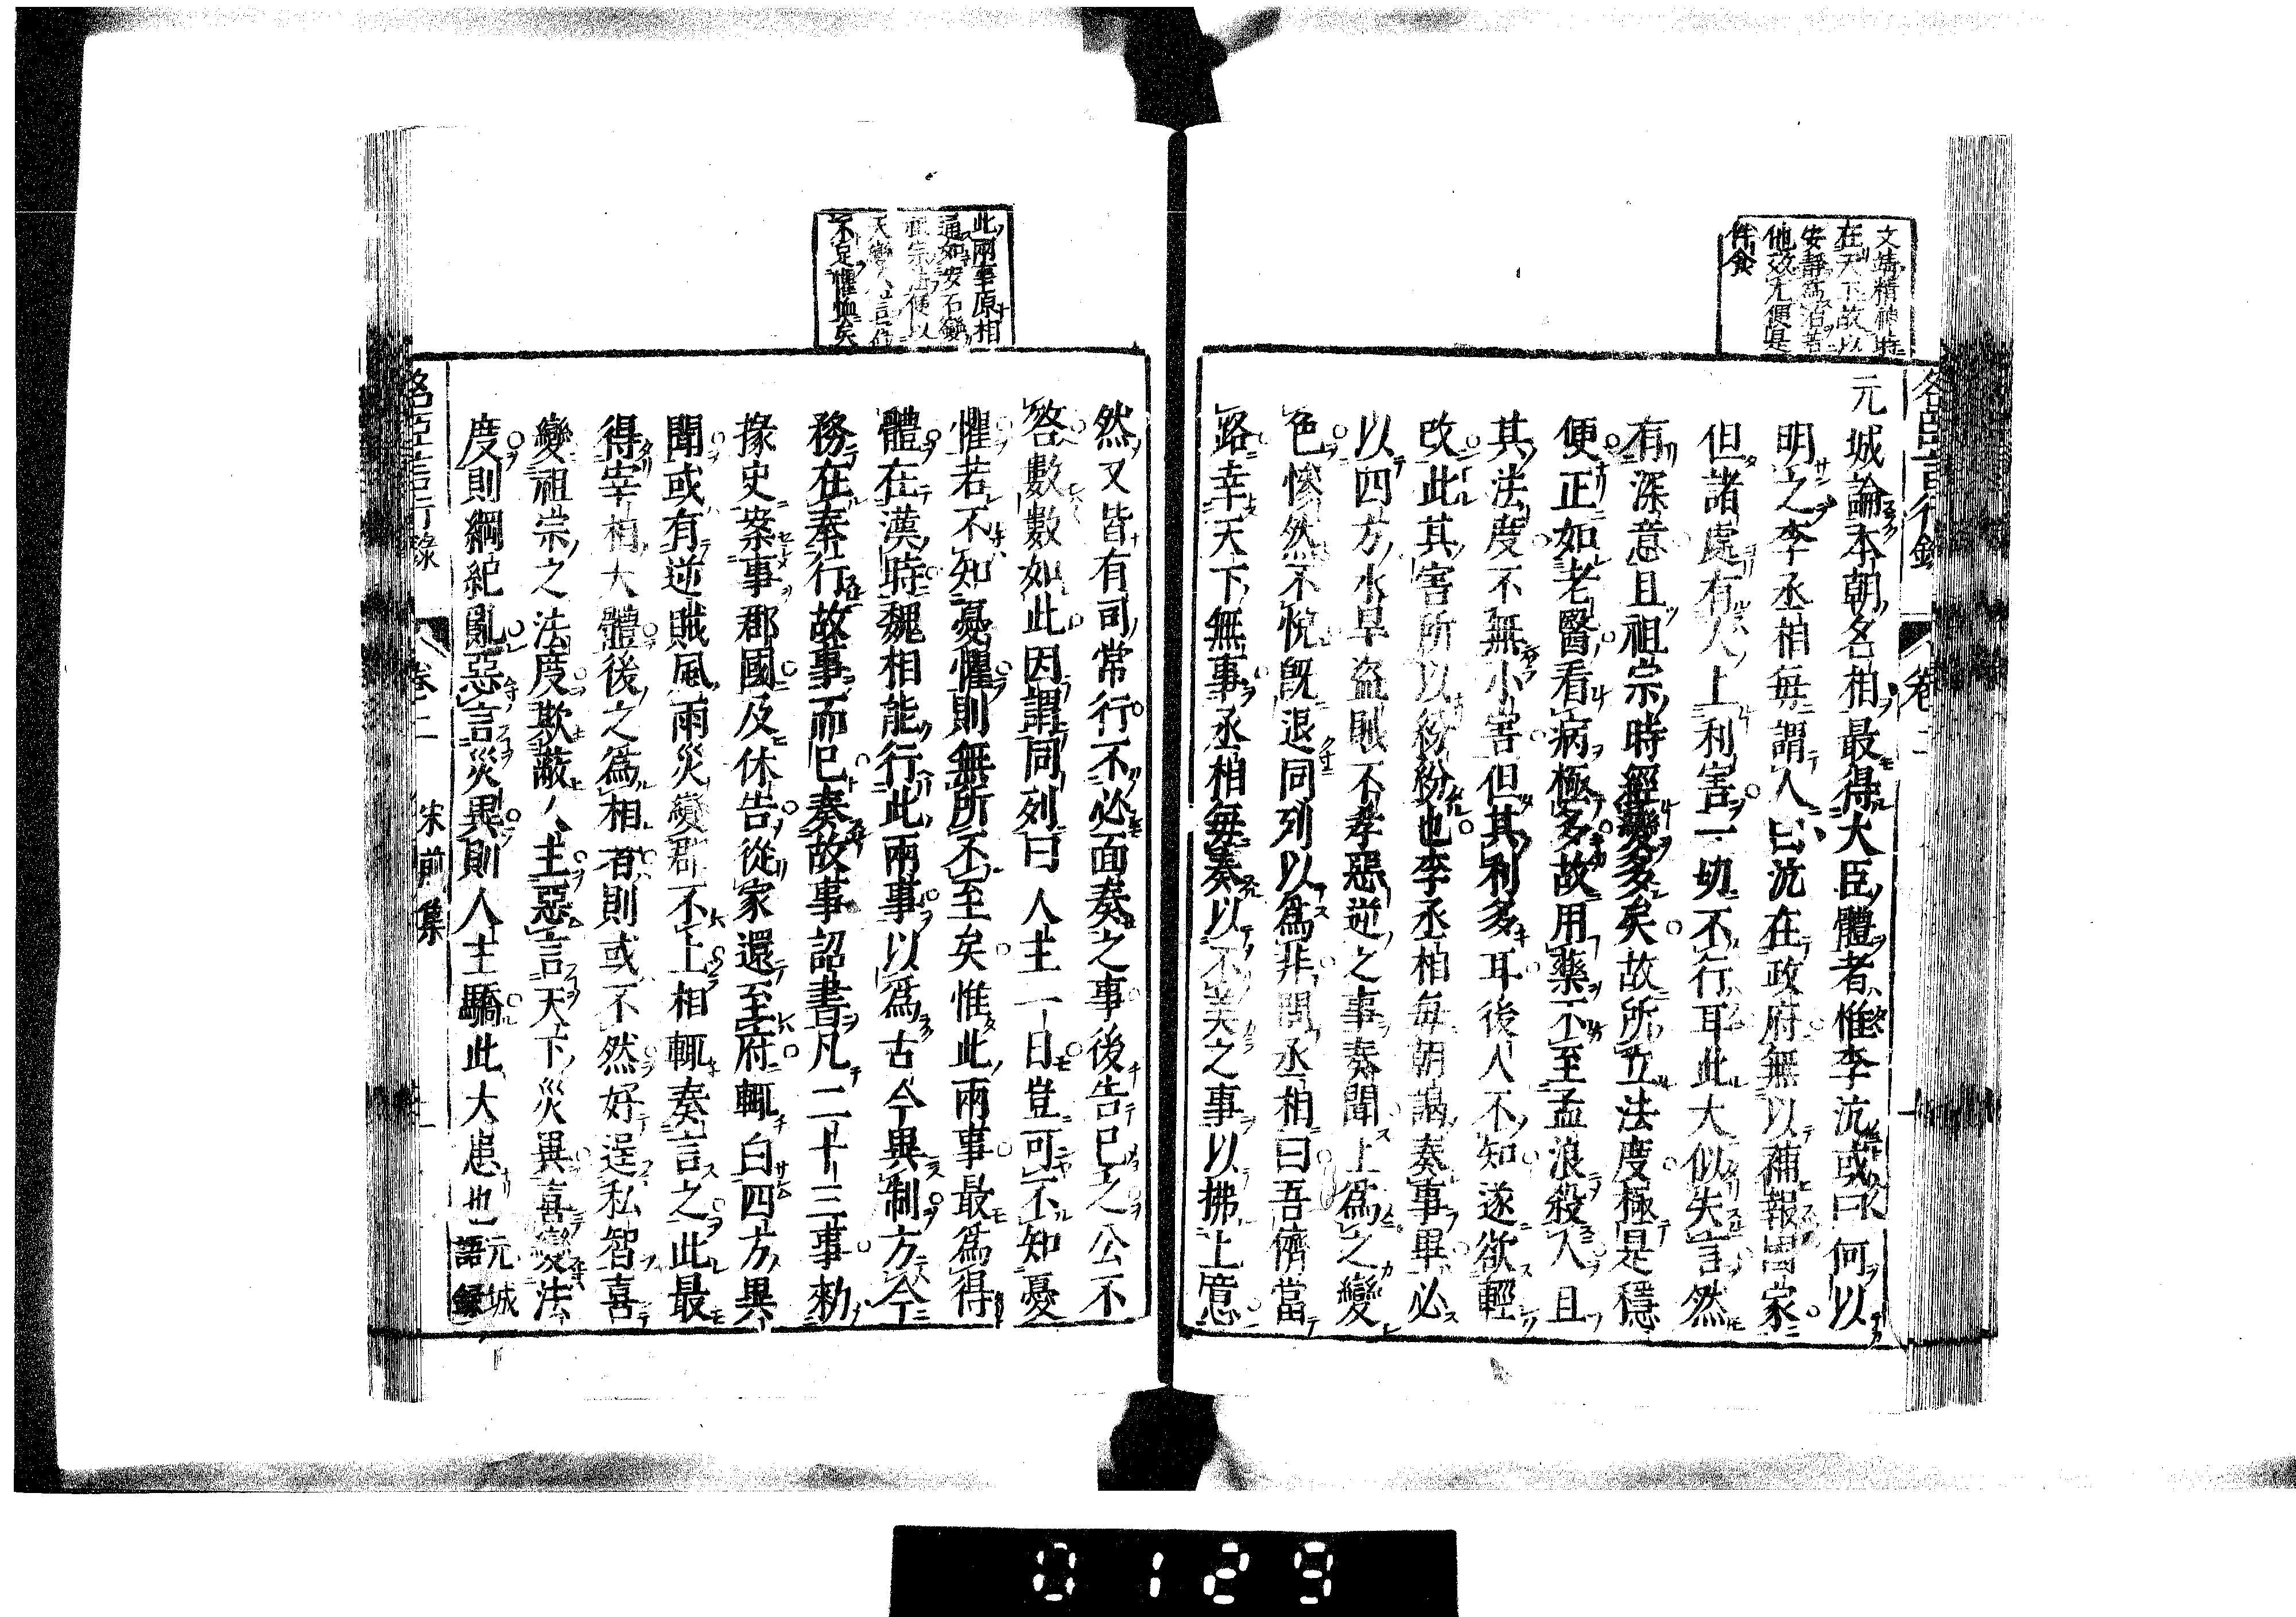 文靖精神時
在天下故以
安靜爲治若
他效尤便是
伴食
名臣言行錄
卷二
元城論本朝名相最得大臣體者惟李沆或曰何以
明之李丞相每謂人曰沆在政府無以補報國家
但諸處有人上利害一切不行耳此大似失言然
有深意且祖宗時經變多矣故所立法度極是穩
便正如老醫看病極多故用藥不至孟浪殺人且
其法度不無小害但其利多耳後人不知遂欲輕
改此其害所以紛紛也李丞相每朝謁奏事畢必
以四方水旱盜賊不孝惡逆之事奏聞上爲之變
色慘然不悅旣退同列以爲非問丞相曰吾儕當
路幸天下無事丞相每奏以不美之事以拂上意
此兩事原相
通如安石變
祖宗法便以
天變人言爲
不足懼恤矣
然又皆有司常行不必面奏之事後告已之公不
答數數如此因謂同列曰人主一日豈可不知憂
懼若不知憂懼則無所不至矣惟此兩事最爲得
體在漢時魏相能行此兩事以爲古今異制方今
務在奉行故事而已奏故事詔書凡二十三事勑
掾史案事郡國及休告從家還至府輒白四方異
聞或有逆賊風雨災變郡不上相輒奏言之此最
得宰相大體後之爲相者則或不然好逞私智喜
變祖宗之法度欺蔽人主惡言天下災異喜變法
度則綱紀亂惡言災異則人主驕此大患也元城語録
名臣言行錄
卷二
宋前集
0129